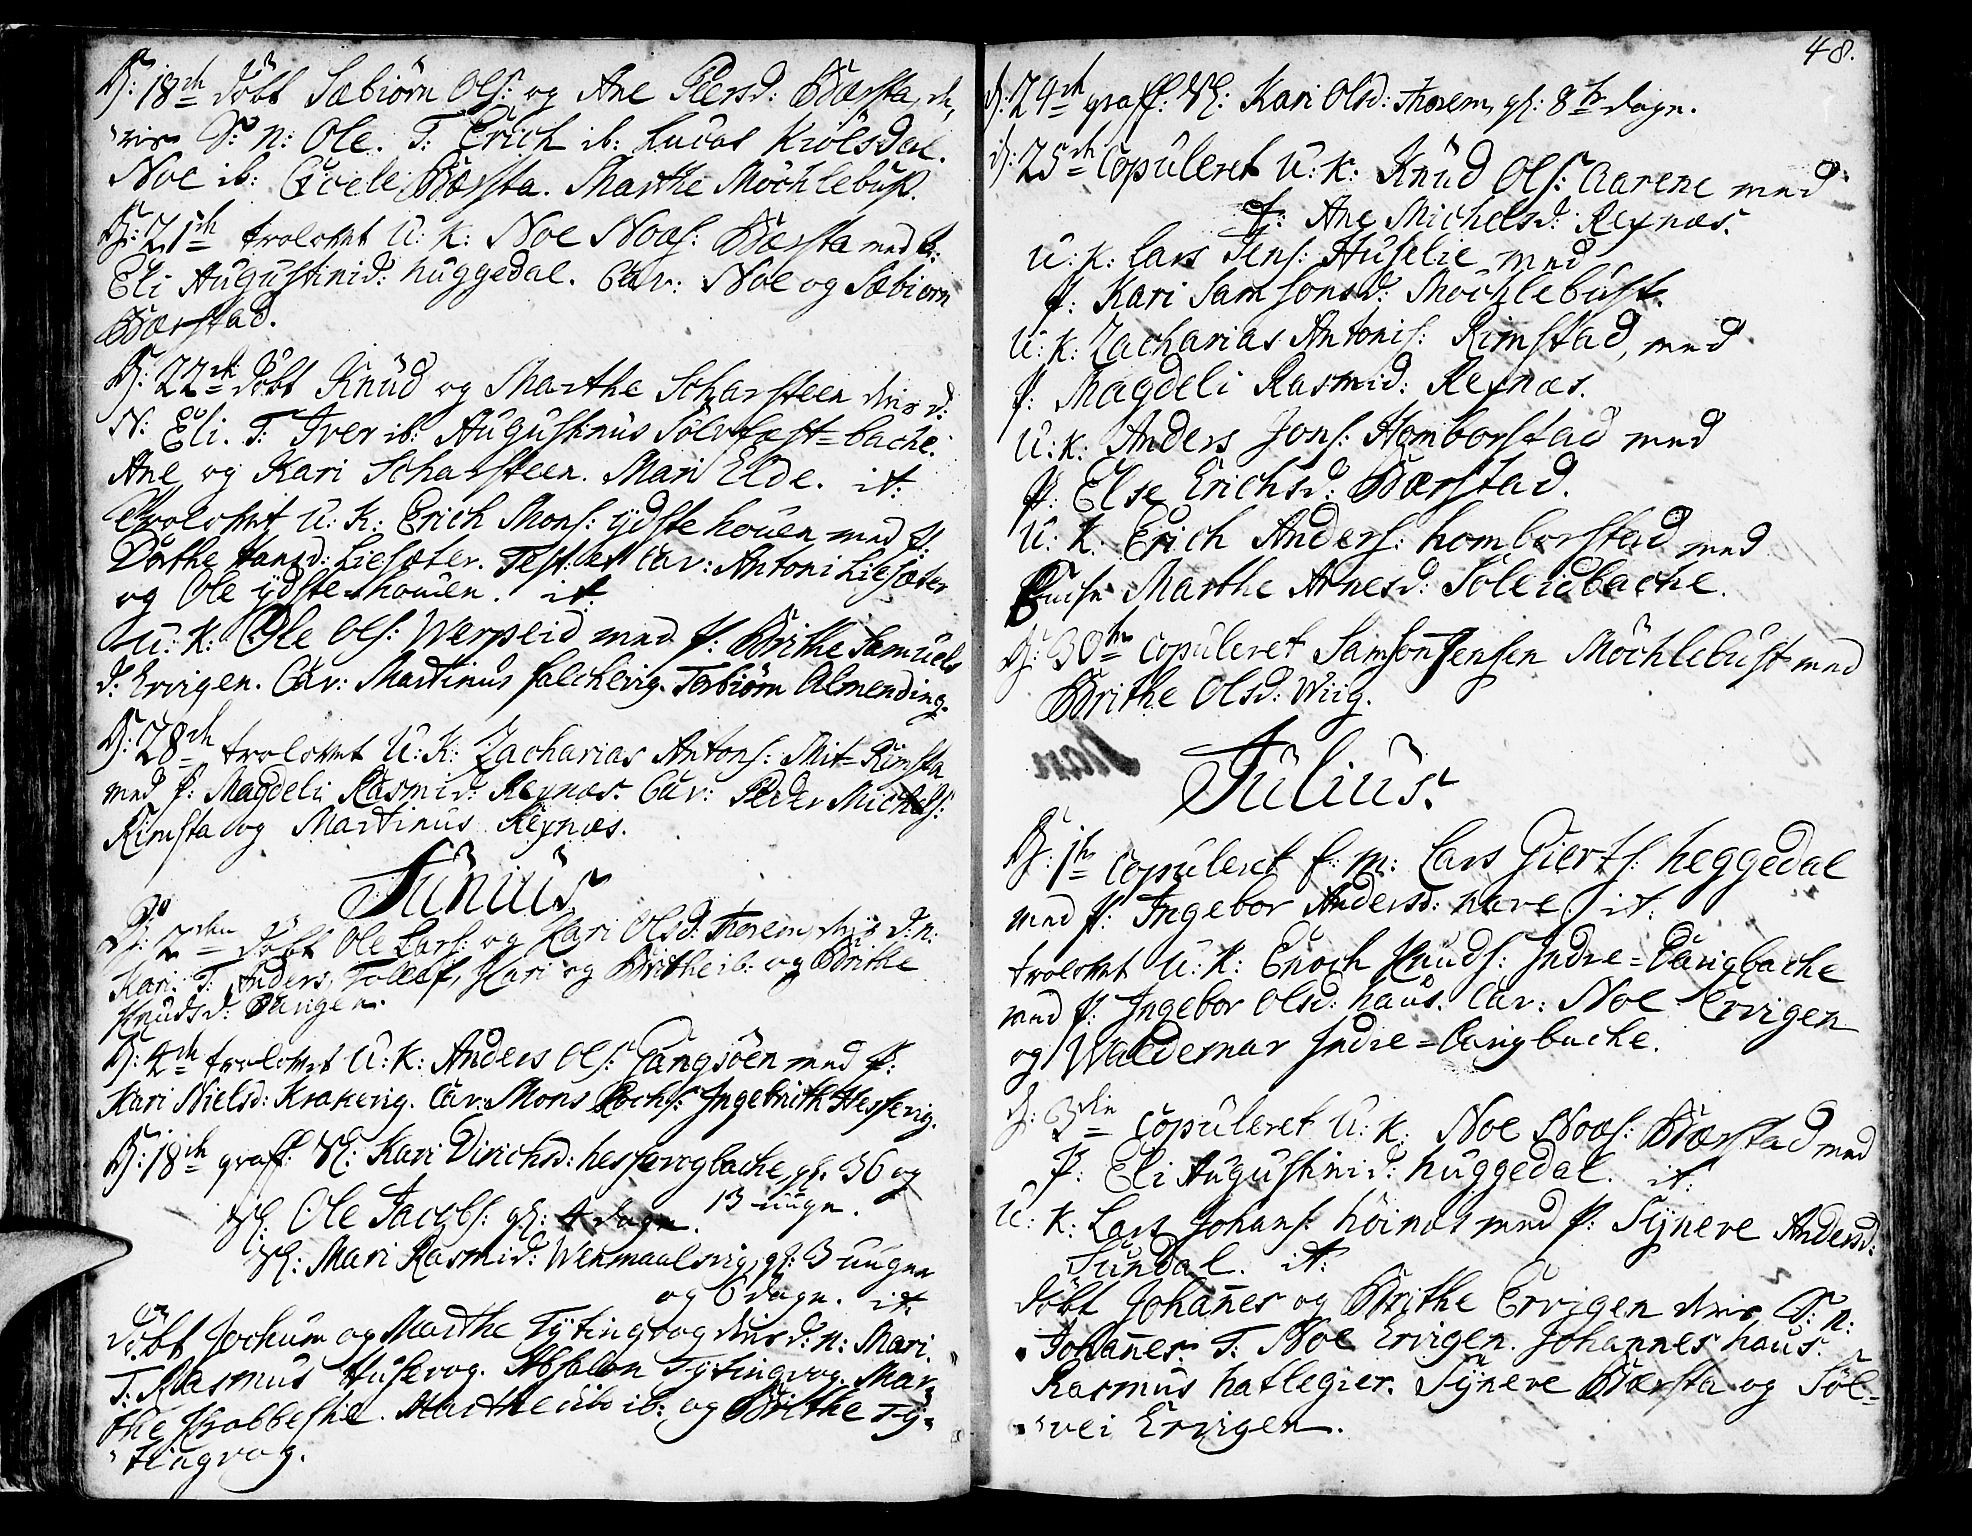 D: 18de döbt Sæbiörn Ols: og Ane Peersd: Bærsta, de-
-ris S: n: Ole. T: Erich ib: Lucas Kiölsdal.
Noe ib: Bærsta. Marthe Möchlebust.
D: 21de trolovet U: K: Noe Noes: Bærsta med P:
Eli Augustinid: huggedal. Cav: Noe og Sæbiorn
Bærstad.
D: 22de döbt Knud og Marthe Scharsteen deris d:
N: Eli. T: Iver ib: Augustinus Sölvfast=bache.
Ane og Kari Scharsteen. Mari Elde. it:
Trolovet U: K: Erich Mons: ydstehouen med P:
Dorthe Hansd: Liesæter. Test: et Cav: Antoni Liesæter
og Ole ydstehouen. it:
U: K: Ole Ols: Werpeid med P: Brithe Samuels
d: Ervigen. Cav: Martinus falchevig. Torbiörn Almending.
D: 28de trolovet U: K: Zacharias Antons: Mit=Rimsta
med P: Magdeli Rasmid: Reynæs. Cav: Peder Michels:
Rimsta og Martinus Reynæs.
Junius
D: 2den döbt Ole Lars: og Kari Olsd: Thorem, deris d: n:
Kari. T: Anders, Tollef, Kari og Brithe ib: og Brithe
Knudsd: Vangen.
D: 4de trolovet U: K: Anders Ols: Gangsöen med P:
Kari Nielsd: Krakevig. Cav: Mons Ingebrith Hessevig.
D: 18de graff: Sl: Kari Dirichsd: hessevogbache, gl. 36 og
Sl: Ole Jacobs: gl: 4 dage. 13 uuger.
Sl: Mari Rasmid: Wenmaalvig, gl: 3 uuger
og 6 dage. it:
döbt Jochum og Marthe Tytingvog deris d: n: Mari.
T: Rasmus Husevog. Absalon Tytingvog. Mar-
the Krabbestie. Marthe ib: og Brithe Ty-
-tingvog.
48.
D: 24de graff: Sl: Kari Olsd: Thorem, gl: 8te dage.
D: 25de Copuleret U: K: Knud Ols: Aarene med
P: Ane Michelsd: Reynæs.
U: K: Lars Jens: Huselie med
P: Kari Samsonsd: Möchlebust.
U: K: Zacharias Antonis: Rimstad, med
P: Magdeli Rasmid: Reynæs.
U: K: Anders Jons: Homborstad med
P: Else Erichsd: Bærstad.
U: K: Erich Anders: homborstad med
Marthe Arnesd: Söleidbache.
D: 30te Copuleret Samson Jensen Möchlebust med
Brithe Olsd: Wiig.
Julius.
D: 1te Copuleret E: M: Lars Gierts: heggedal
med P: Ingebor Andersd: nave. it:
trolovet U: K: Enoch Knuds: Indre=Vaagbache
med P: Ingebor Olsd: haus. Cav: Noe Ervigen
og Waldemar Indre=Vaagbache.
D: 3die Copuleret U: K: Noe Noes: Bærstad med
P: Eli Augustinid: huggedal. it:
U: K: Lars Johans: höinæs med P: Syneve Andersd:
Sundal. it:
döbt Johannes og Brithe Ervigen deris S: n:
Johannes. T: Noe Ervigen. Johannes haus.
Rasmus hatlegier. Syneve Bærsta og Söl-
-vei Ervigen.